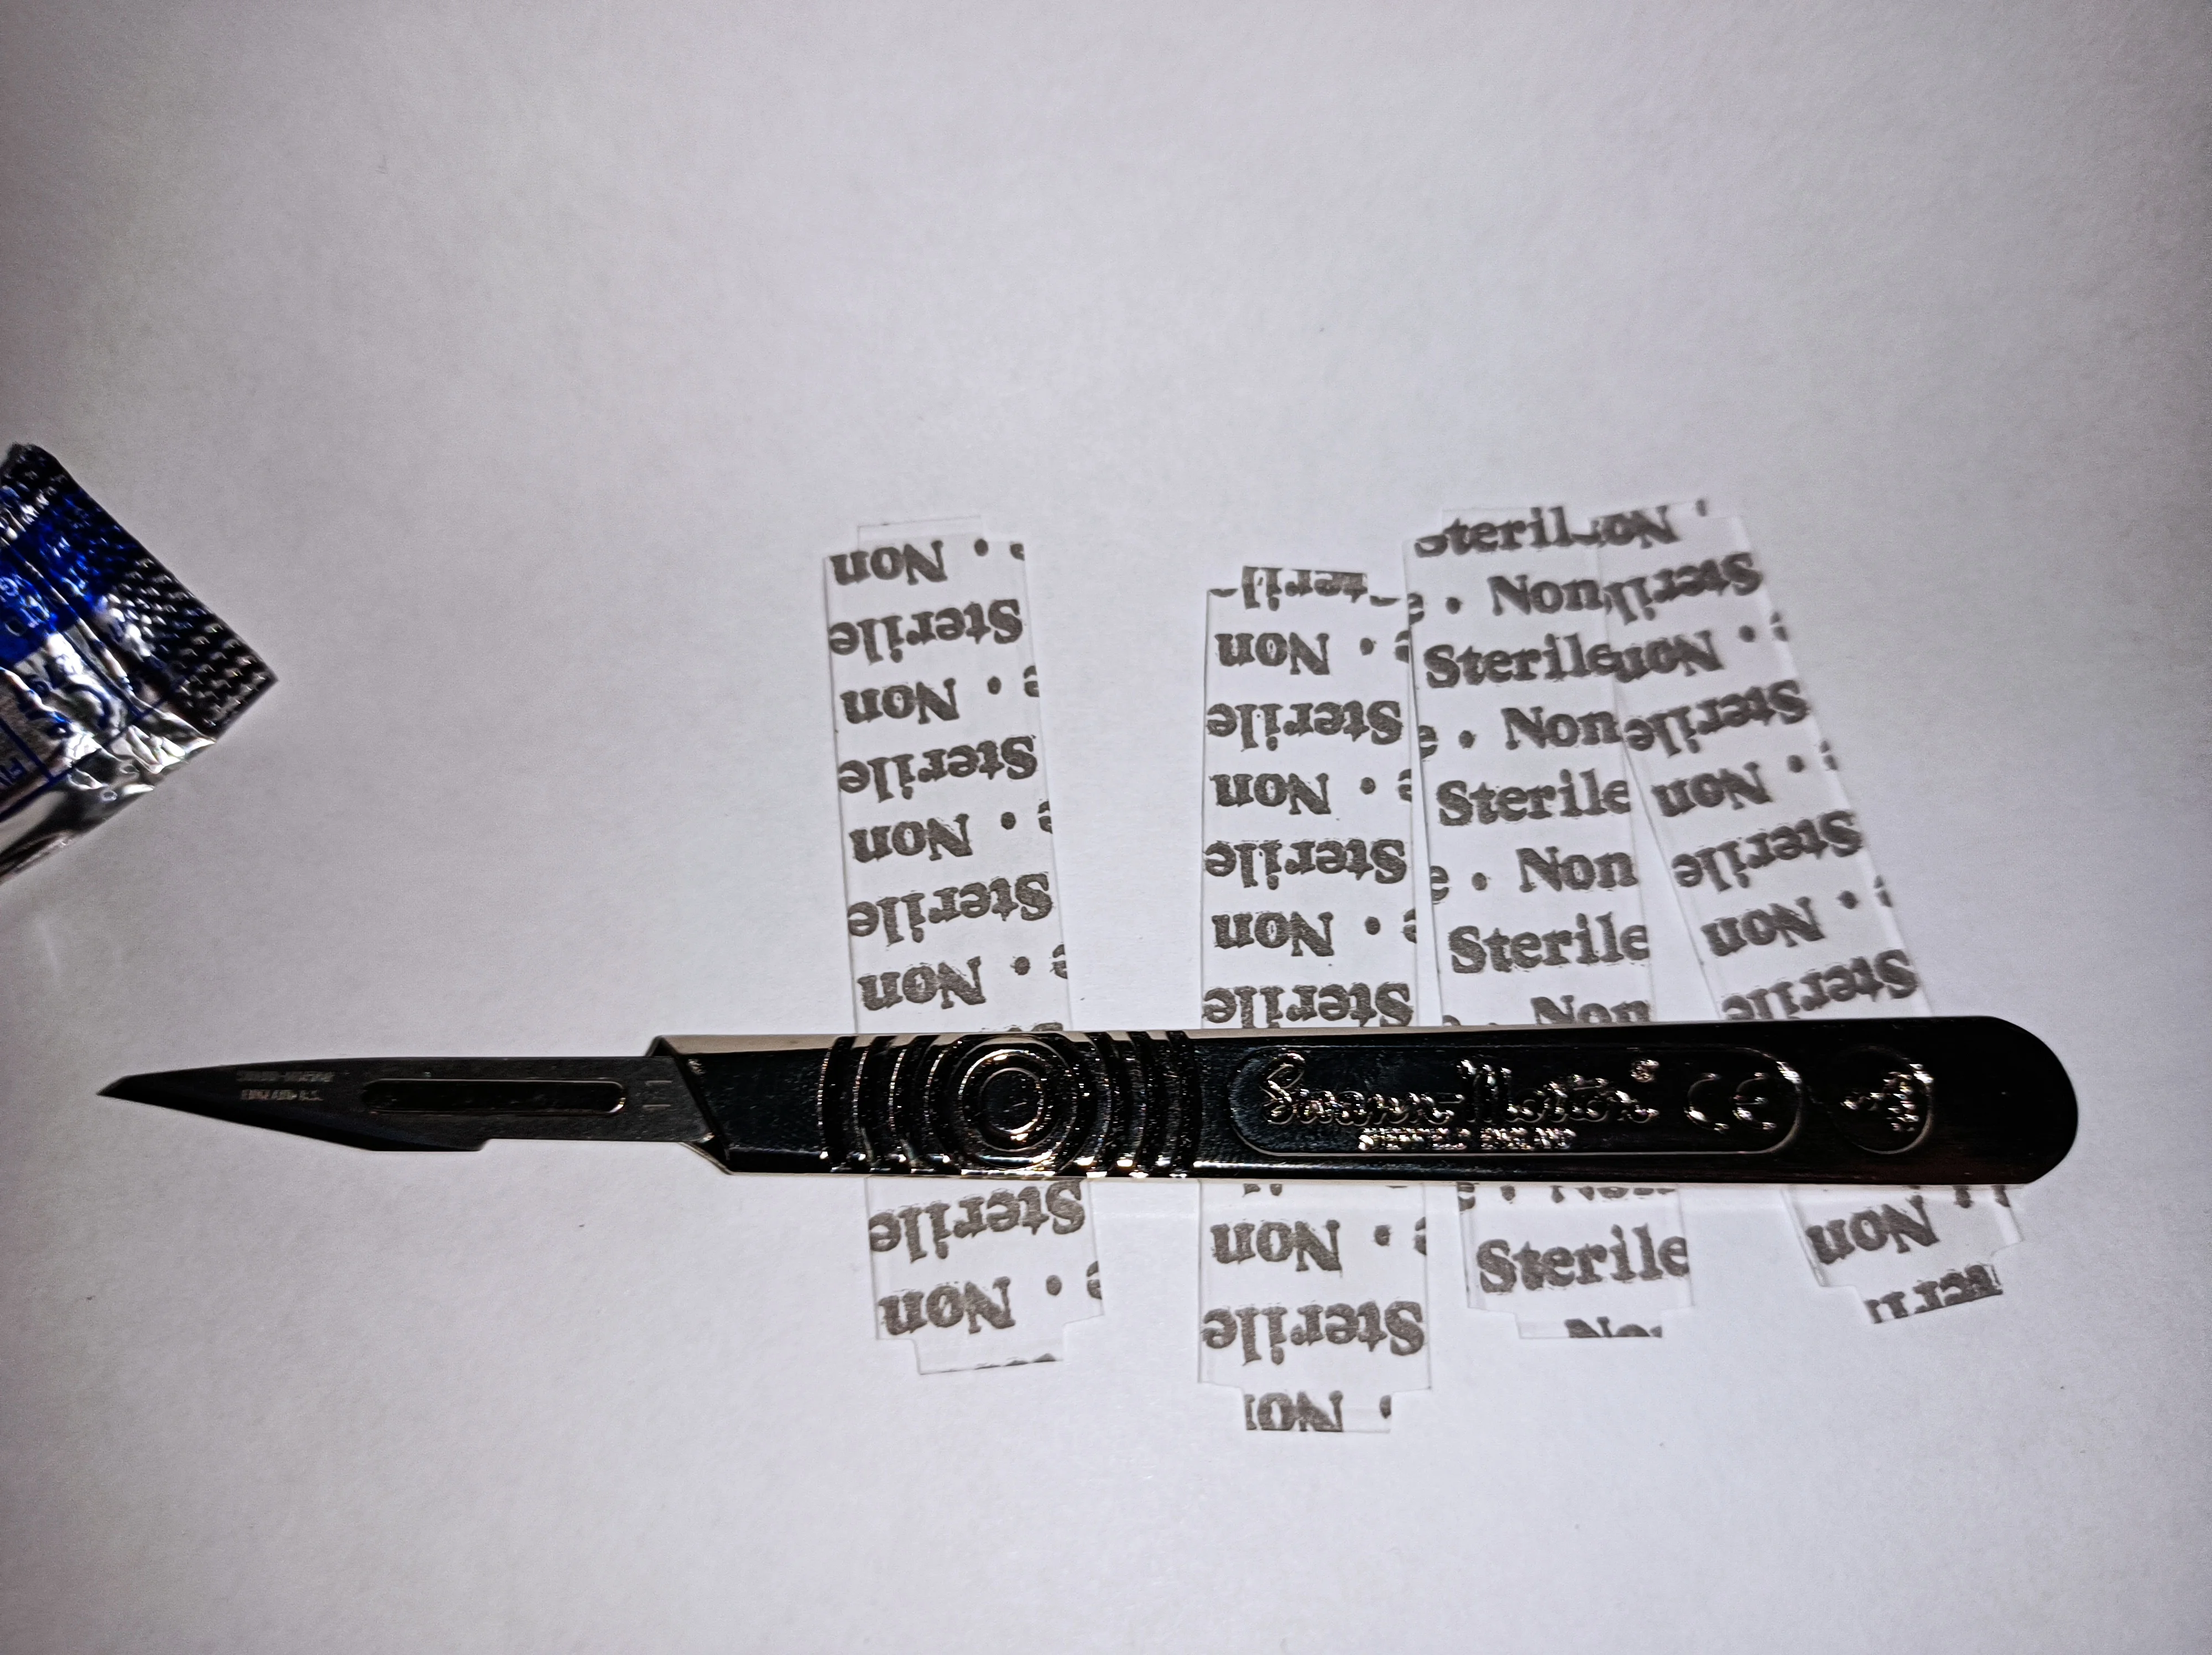 Non •
Sterile
Non •
Sterile
Non •
Sterile
Non •
Sterile
Non •
Non •
Sterile
Non •
Sterile
Non •
Sterile
Non •
Sterile
• Non
Sterile
• Non
Sterile
• Non
Sterile
Non
Sterile
Non •
Sterile
Non •
Sterile
Non •
Sterile
Non •
Sterile
Non
SWANN-MORTON
ENGLAND
11
Swann-Morton®
SHEFFIELD ENGLAND
CE
3